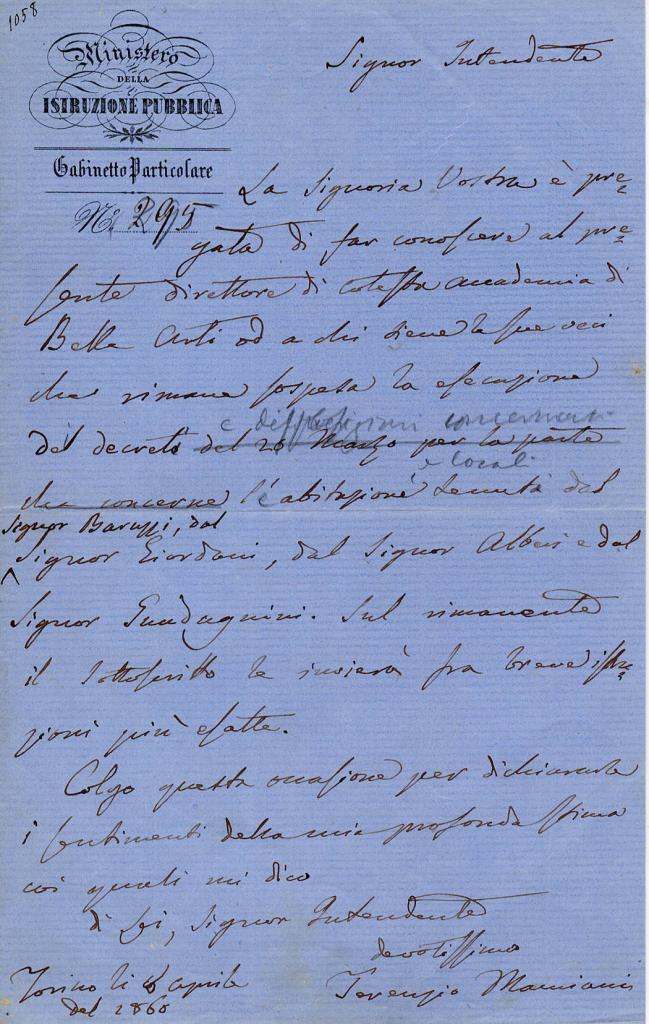 1058
Ministero
DELLA
ISTRUZIONE PUBBLICA
Gabinetto Particolare
N.º 295
Signor Intendente
La Signoria Vostra è pre=
gata di far conoscere al pre=
sente direttore di cotesta Accademia di
Belle Arti od a chi tiene le sue veci
che rimane sospesa la esecuzione
e disposizioni concernenti
del decreto del 20 Marzo per la parte
e locali
che concerne l'abitazione tenuta dal
Signor Baruzzi, dal
Signor Giordani, dal Signor Alberi e dal
Signor Guadagnini. Sul rimanente
il Sottoscritto le invierà fra breve istru=
zioni più esatte.
Colgo questa occasione per dichiararle
i sentimenti della mia profonda stima
coi quali mi dico
di Lei, Signor Intendente
devotissimo
Terenzio Mamiani
Torino li aprile
del 1860